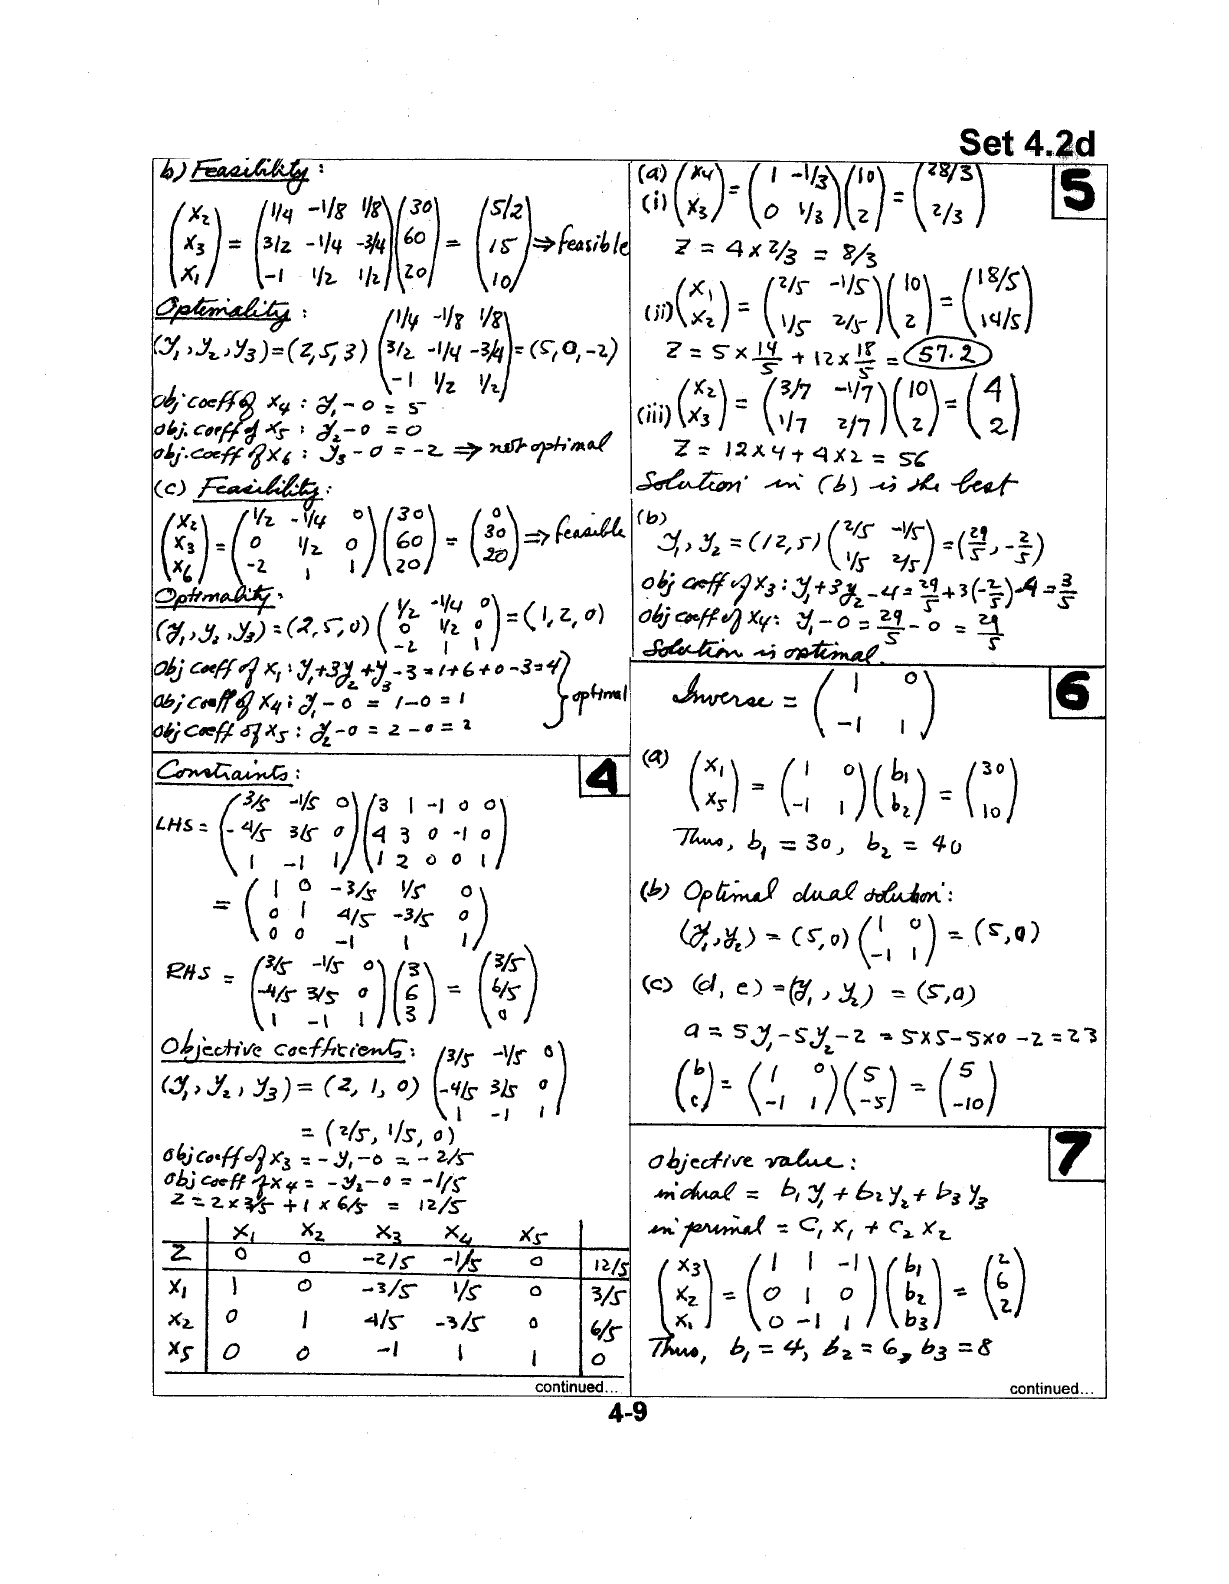 Set 4.2d
b) Feasibility :
(x2 x3 x1) = (1/4 -1/8 1/8; 3/2 -1/4 -3/4; -1 1/2 1/2) (30 60 20) = (5/2 15 10) ⇒ feasible
Optimality :
(y1, y2, y3) = (2, 5, 3) (1/4 -1/8 1/8; 3/2 -1/4 -3/4; -1 1/2 1/2) = (5, 0, -2)
obj coeff of x4 : y1 - 0 = 5
obj. coeff of x5 : y2 - 0 = 0
obj. coeff of x6 : y3 - 0 = -2 ⇒ not optimal
(c) Feasibility :
(x2 x3 x6) = (1/2 -1/4 0; 0 1/2 0; -2 1 1) (30 60 20) = (0 30 20) ⇒ feasible
Optimality :
(y1, y2, y3) = (2, 5, 0) (1/2 -1/4 0; 0 1/2 0; -2 1 1) = (1, 2, 0)
Obj coeff of x1 : y1 + 3y2 + y3 - 3 = 1+6+0-3 = 4
obj coeff of x4 : y1 - 0 = 1-0 = 1 } optimal
obj coeff of x5 : y2 - 0 = 2-0 = 2
4
Constraints :
LHS = (3/5 -1/5 0; -4/5 3/5 0; 1 -1 1) (3 1 -1 0 0; 4 3 0 -1 0; 1 2 0 0 1)
= (1 0 -3/5 1/5 0; 0 1 4/5 -3/5 0; 0 0 -1 1 1)
RHS = (3/5 -1/5 0; -4/5 3/5 0; 1 -1 1) (3 6 3) = (3/5 6/5 0)
Objective coefficients :
(y1, y2, y3) = (2, 1, 0) (3/5 -1/5 0; -4/5 3/5 0; 1 -1 1)
= (2/5, 1/5, 0)
obj coeff of x3 = -y1 - 0 = -2/5
obj coeff of x4 = -y2 - 0 = -1/5
Z = 2 x 3/5 + 1 x 6/5 = 12/5
x1 x2 x3 x4 x5
Z 0 0 -2/5 -1/5 0 12/5
x1 1 0 -3/5 1/5 0 3/5
x2 0 1 4/5 -3/5 0 6/5
x5 0 0 -1 1 1 0
continued...
5
(a)
(i) (x4 x3) = (1 -1/3; 0 1/3) (10 2) = (28/3 2/3)
Z = 4 x 2/3 = 8/3
(ii) (x1 x2) = (2/5 -1/5; 1/5 2/5) (10 2) = (18/5 14/5)
Z = 5 x 14/5 + 12 x 18/5 = 57.2
(iii) (x2 x3) = (3/7 -1/7; 1/7 2/7) (10 2) = (4 2)
Z = 12 x 4 + 4 x 2 = 56
Solution in (b) is the best
(b)
y1, y2 = (12, 5) (2/5 -1/5; 1/5 2/5) = (29/5, -2/5)
obj coeff of x3 : y1 + 3y2 - 4 = 29/5 + 3(-2/5) - 4 = 3/5
obj coeff of x4 : y1 - 0 = 29/5 - 0 = 29/5
Solution is optimal.
6
Inverse = (1 0; -1 1)
(a) (x1 x5) = (1 0; -1 1) (b1 b2) = (30 10)
Thus, b1 = 30, b2 = 40
(b) Optimal dual solution :
(y1, y2) = (5, 0) (1 0; -1 1) = (5, 0)
(c) (d, e) = (y1, y2) = (5, 0)
a = 5y1 - 5y2 - 2 = 5x5 - 5x0 - 2 = 23
(b c) = (1 0; -1 1) (5 -5) = (5 -10)
7
objective value :
in dual = b1 y1 + b2 y2 + b3 y3
in primal = C1 x1 + C2 x2
(x3 x2 x1) = (1 1 -1; 0 1 0; 0 -1 1) (b1 b2 b3) = (2 6 2)
Thus, b1 = 4, b2 = 6, b3 = 8
continued...
4-9